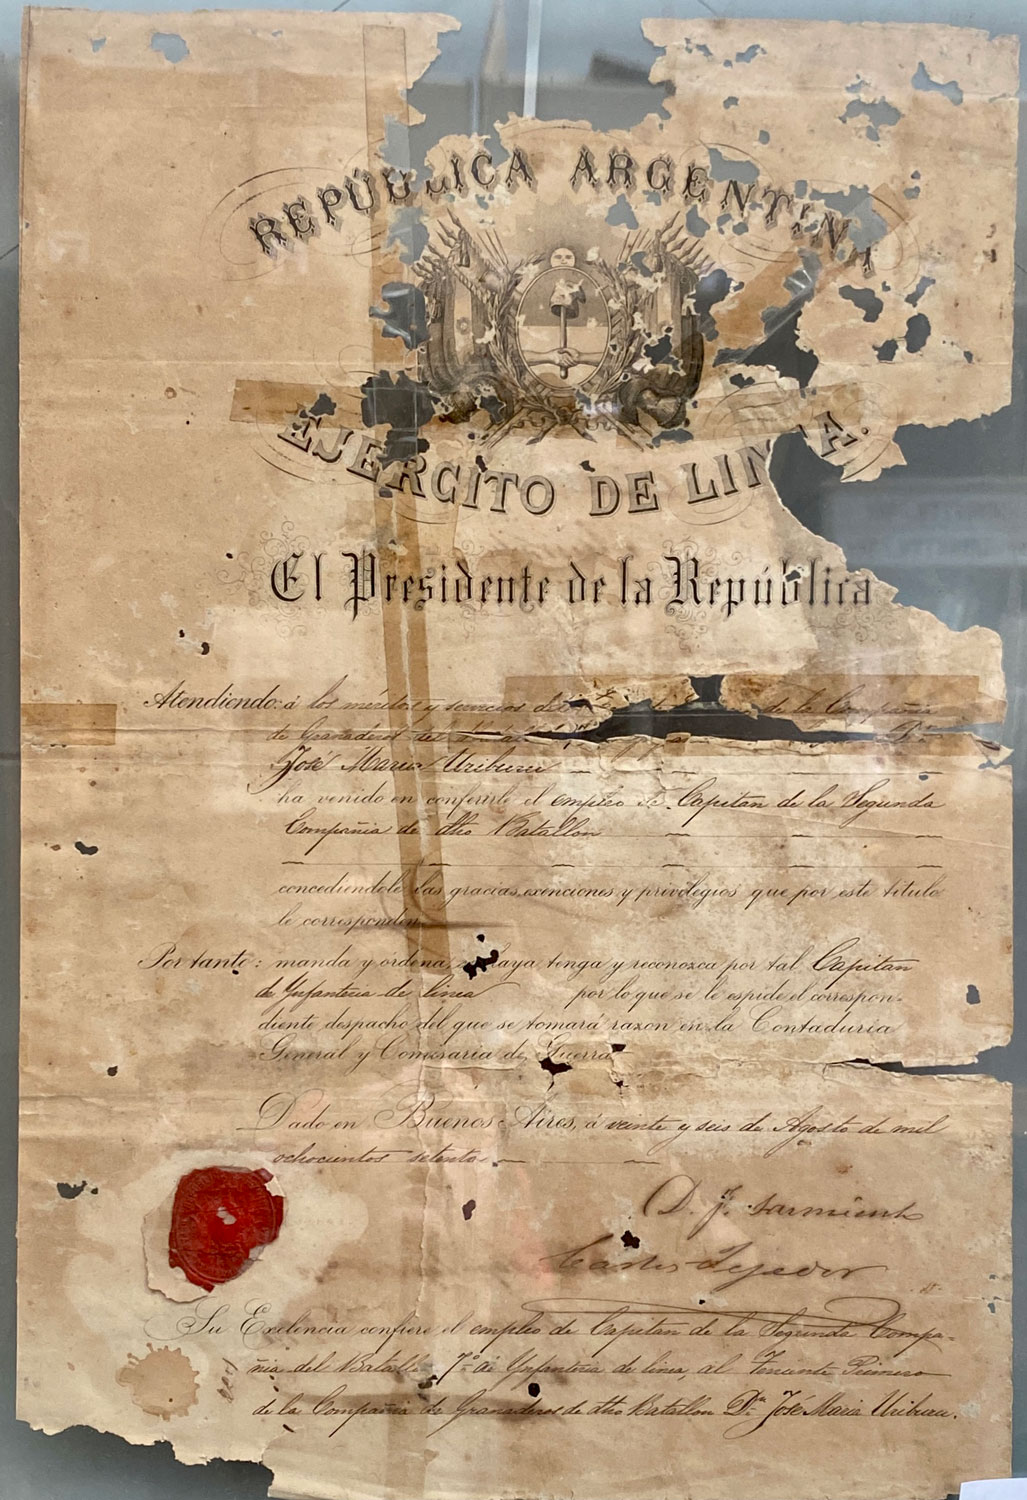 REPÚBLICA ARGENTINA
EJERCITO DE LINEA.
El Presidente de la República
Atendiendo: á los méritos y servicios del de la Compañia
de Granaderos del Dn
José Maria Uriburu
ha venido en conferirle el empleo de Capitan de la Segunda
Compañia de dho Batallon
concediendole las gracias, exenciones y privilegios que por este titulo
le corresponden.
Por tanto: manda y ordena, haya tenga y reconozca por tal Capitan
de Ynfanteria de linea por lo que se le espide el correspon-
diente despacho del que se tomará razon en la Contaduria
General y Comisaria de Guerra
Dado en Buenos-Aires, á veinte y seis de Agosto de mil
ochocientos setenta.
D. F. Sarmiento
Carlos Tejedor
Su Exelencia confiere el empleo de Capitan de la Segunda Compa-
ñia del Batallon 7º de Ynfanteria de linea, al Teniente Primero
de la Compañia de Granaderos de dho Batallon Dn José Maria Uriburu.